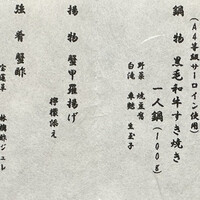 (A4等級サーロイン使用)
鍋物 黒毛和牛すき焼き
一人鍋(100g)
野菜 焼豆腐
白滝 車麩 生玉子
揚物 蟹甲羅揚げ
檸檬添え
強肴 蟹酢
宝蓮草 林檎酢ジュレ